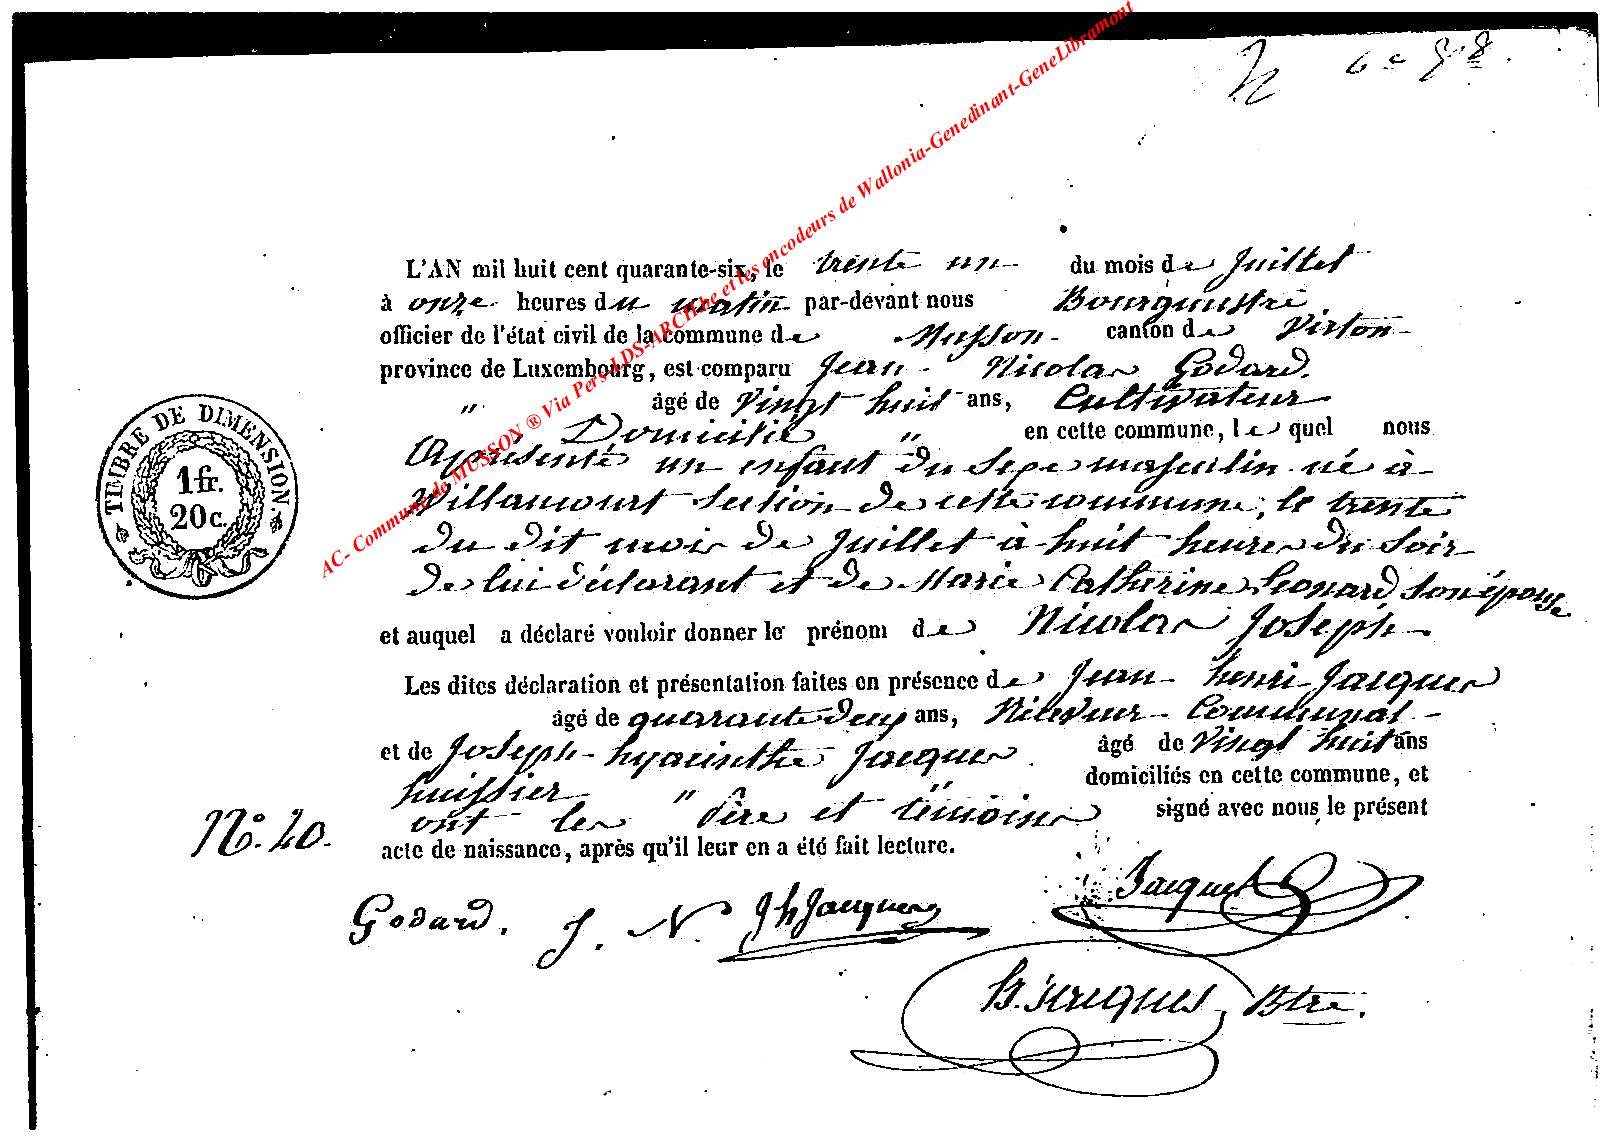 6e 58.
L'AN mil huit cent quarante-six, le trente un du mois de Juillet
à onze heures du matin par-devant nous Bourgmestre
officier de l'état civil de la commune de Musson canton de Virton
province de Luxembourg, est comparu Jean Nicolas Godard.
" âgé de Vingt huit ans, Cultivateur
Domicilié " en cette commune, le quel nous
a présenté un enfant du sexe masculin né à
Willancourt section de cette commune, le trente
du dit mois de Juillet à huit heures du soir
de lui déclarant et de Marie Catherine Leonard son épouse
et auquel a déclaré vouloir donner le prénom de Nicolas Joseph
Les dites déclaration et présentation faites en présence de Jean henri Jacques
âgé de quarante deux ans, Receveur Communal
et de Joseph hyacinthe Jacques âgé de Vingt huit ans
huissier " domiciliés en cette commune, et
ont les Père et témoins signé avec nous le présent
acte de naissance, après qu'il leur en a été fait lecture.
N°. 20.
Godard. J. N. JhJacques Jacques
B. Jacques, Btre.
TIMBRE DE DIMENSION.
1 fr.
20 c.
AC- Commune de MUSSON ® Via Pers-LDS-ARCH.be et les encodeurs de Wallonia-Genedinant-GeneLibramont